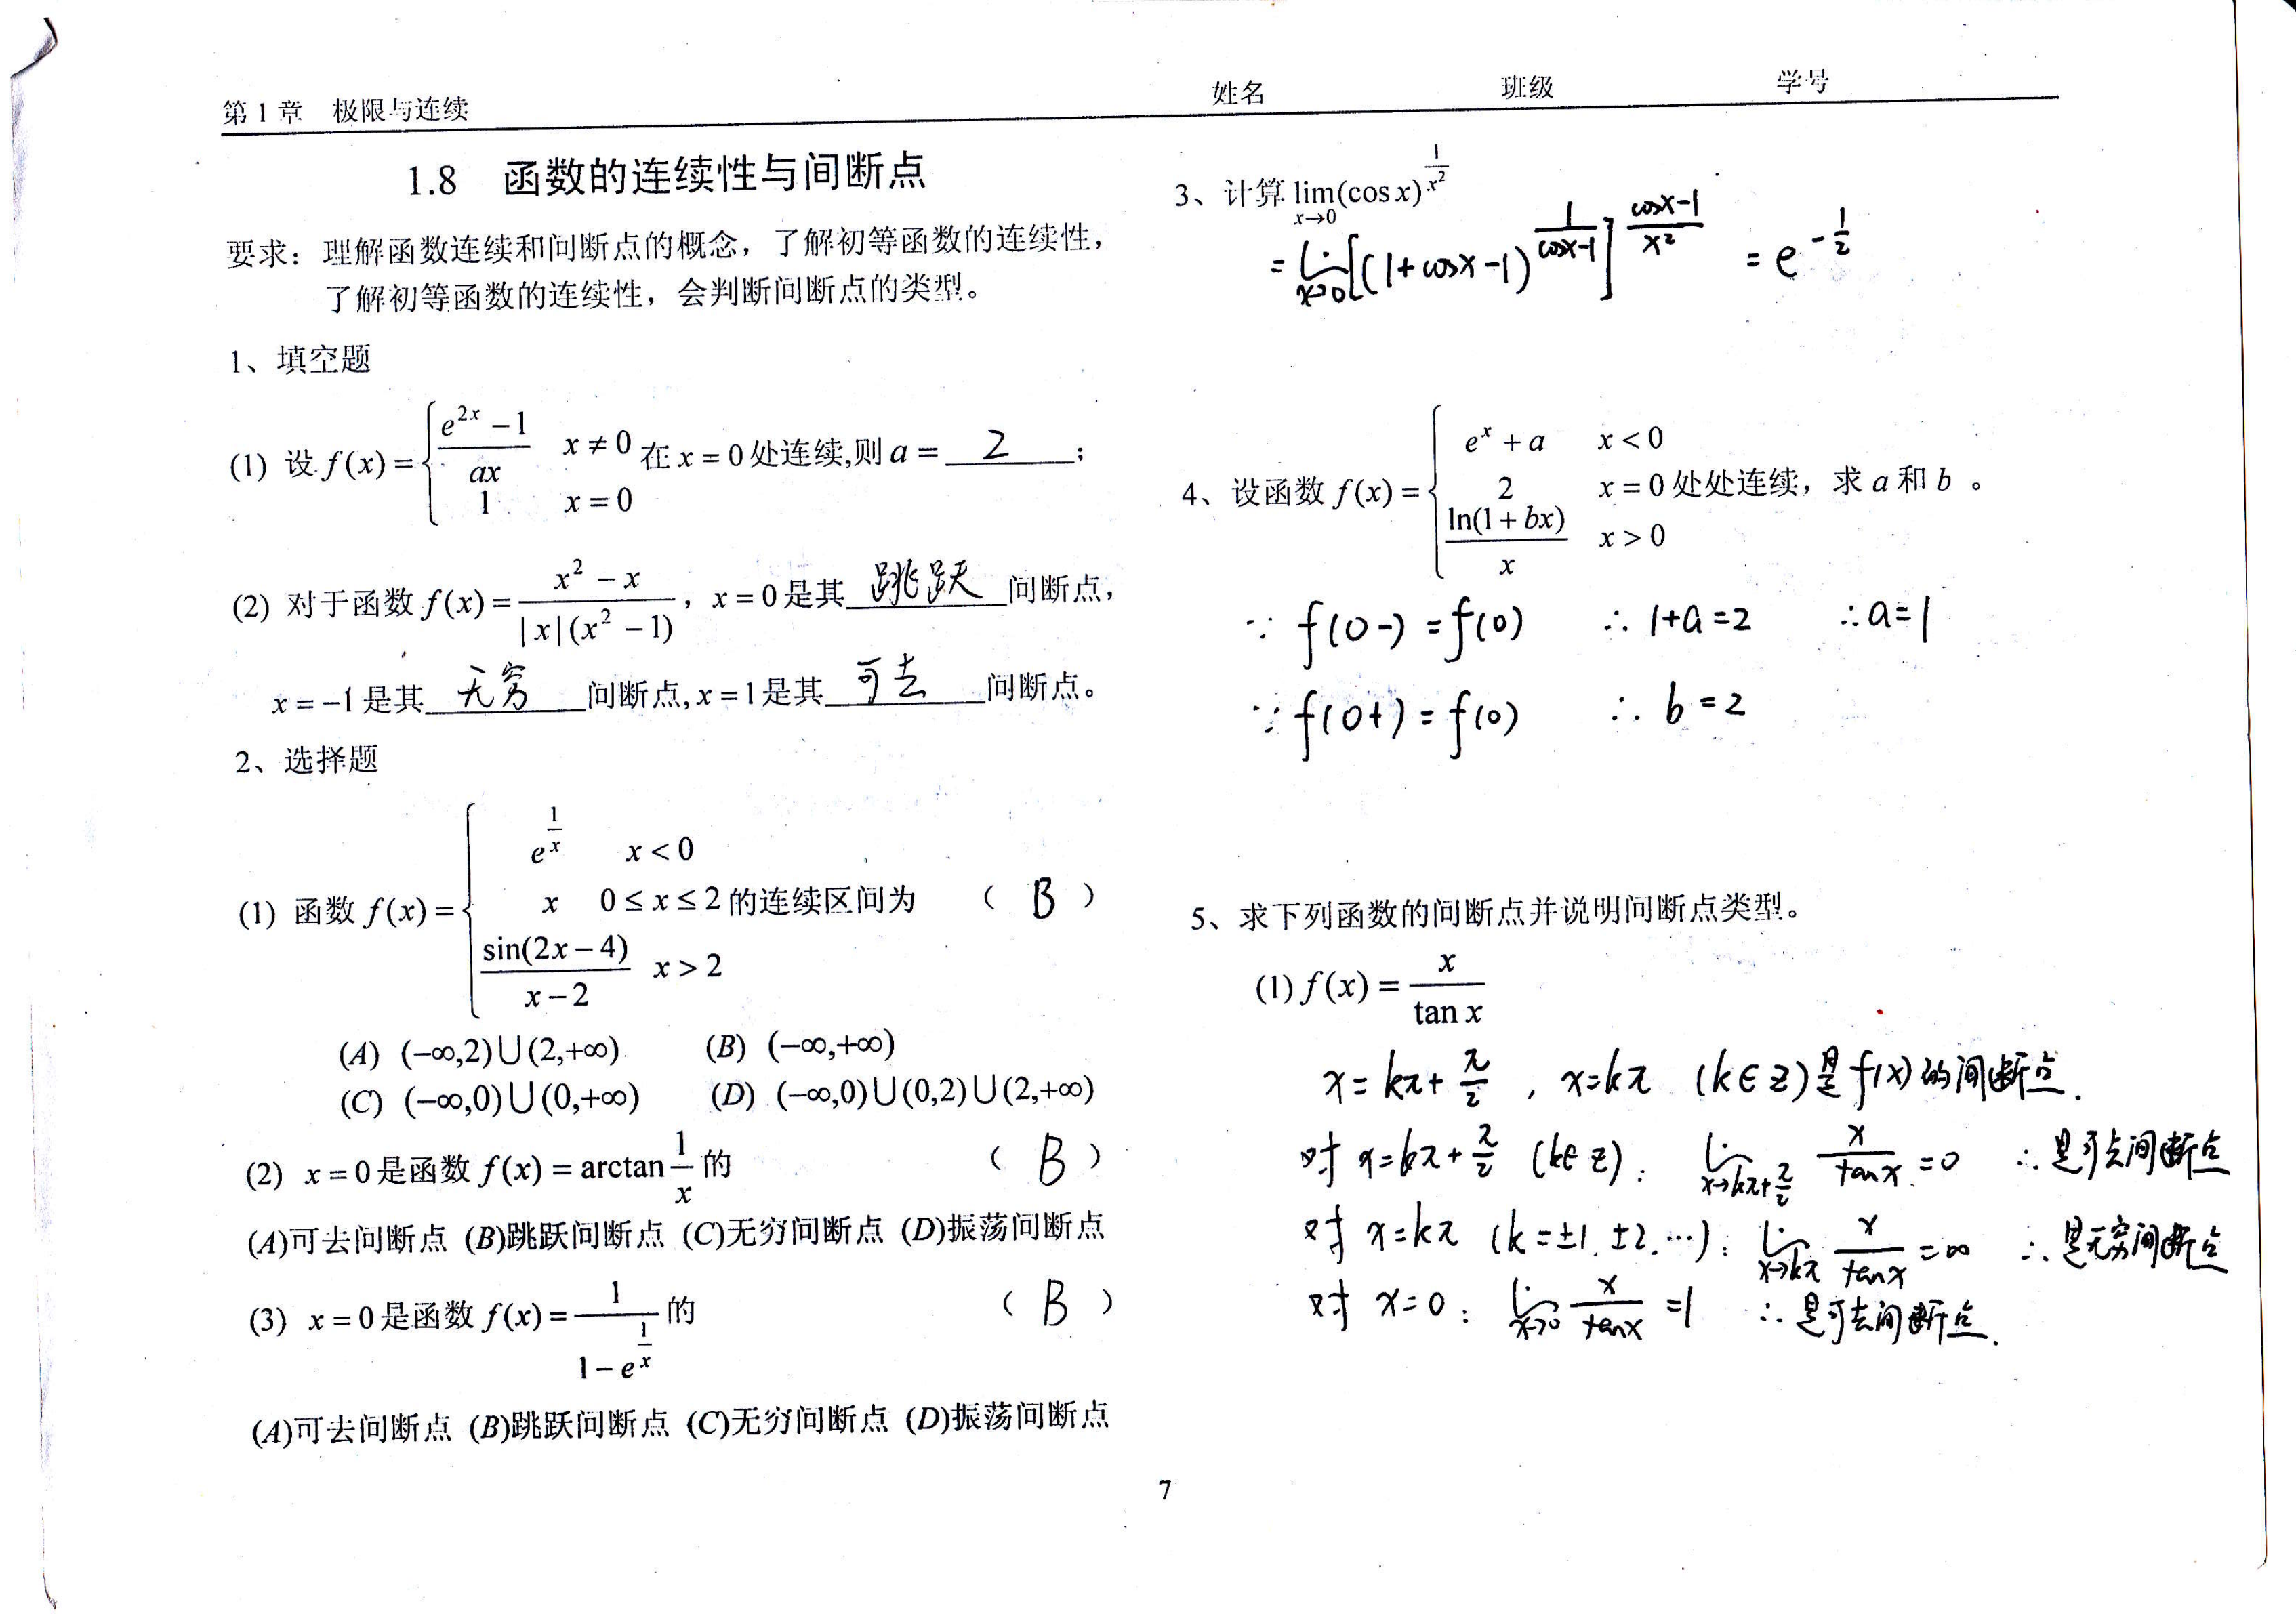 第1章 极限与连续 姓名 班级 学号
1.8 函数的连续性与间断点
要求：理解函数连续和间断点的概念，了解初等函数的连续性，
了解初等函数的连续性，会判断间断点的类型。
1、填空题
(1) 设 f(x) = { (e^{2x} − 1)/(ax) x ≠ 0; 1 x = 0 在 x = 0 处连续,则 a = 2 ；
(2) 对于函数 f(x) = (x² − x)/(|x|(x² − 1))，x = 0 是其 跳跃 间断点，
x = −1 是其 无穷 间断点, x = 1 是其 可去 间断点。
2、选择题
(1) 函数 f(x) = { e^{1/x} x < 0; x 0 ≤ x ≤ 2; sin(2x − 4)/(x − 2) x > 2 的连续区间为 （ B ）
(A) (−∞,2)∪(2,+∞) (B) (−∞,+∞)
(C) (−∞,0)∪(0,+∞) (D) (−∞,0)∪(0,2)∪(2,+∞)
(2) x = 0 是函数 f(x) = arctan 1/x 的 （ B ）
(A)可去间断点 (B)跳跃间断点 (C)无穷间断点 (D)振荡间断点
(3) x = 0 是函数 f(x) = 1/(1 − e^{1/x}) 的 （ B ）
(A)可去间断点 (B)跳跃间断点 (C)无穷间断点 (D)振荡间断点
3、计算 lim_{x→0} (cos x)^{1/x²}
= lim_{x→0} [(1+cosx−1)^{1/(cosx−1)}]^{(cosx−1)/x²} = e^{−1/2}
4、设函数 f(x) = { e^x + a x < 0; 2 x = 0; ln(1 + bx)/x x > 0 处处连续，求 a 和 b 。
∵ f(0−) = f(0) ∴ 1+a=2 ∴ a=1
∵ f(0+) = f(0) ∴ b=2
5、求下列函数的间断点并说明间断点类型。
(1) f(x) = x/tan x
x = kπ+π/2 , x=kπ (k∈Z) 是 f(x) 的间断点.
对 x=kπ+π/2 (k∈Z): lim_{x→kπ+π/2} x/tanx =0 ∴ 是可去间断点
对 x=kπ (k=±1, ±2, …): lim_{x→kπ} x/tanx =∞ ∴ 是无穷间断点
对 x=0: lim_{x→0} x/tanx =1 ∴ 是可去间断点.
7